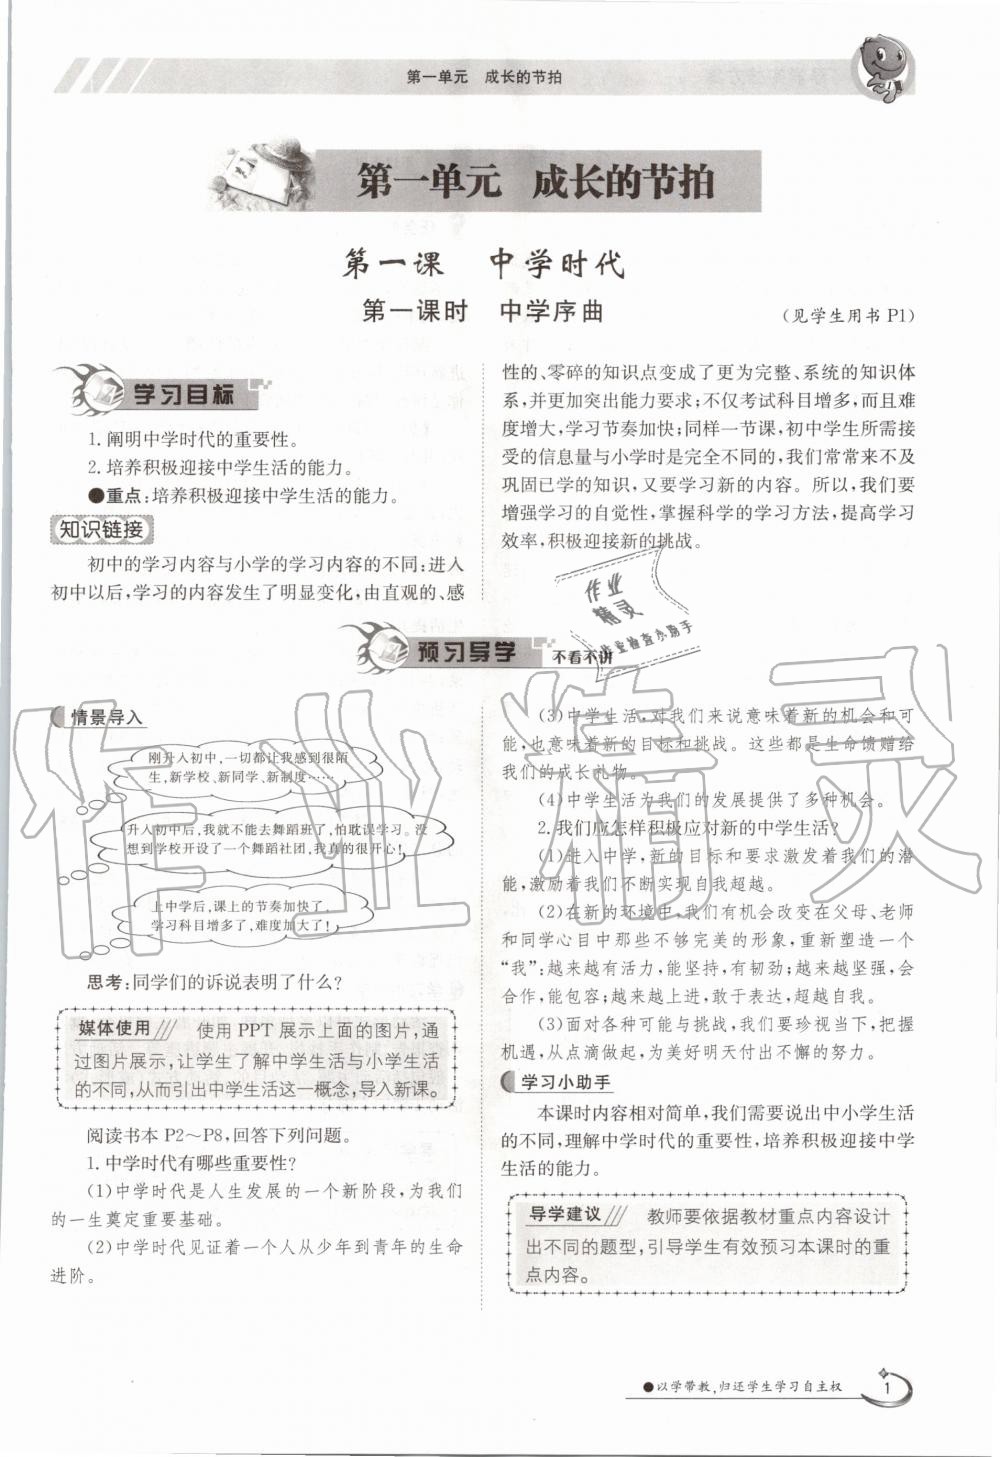 第一单元 成长的节拍
第一单元 成长的节拍
第一课 中学时代
第一课时 中学序曲
(见学生用书 P1)
学习目标
1. 阐明中学时代的重要性。
2. 培养积极迎接中学生活的能力。
●重点:培养积极迎接中学生活的能力。
知识链接
初中的学习内容与小学的学习内容的不同:进入
初中以后,学习的内容发生了明显变化,由直观的、感
性的、零碎的知识点变成了更为完整、系统的知识体
系,并更加突出能力要求;不仅考试科目增多,而且难
度增大,学习节奏加快;同样一节课,初中学生所需接
受的信息量与小学时是完全不同的,我们常常来不及
巩固已学的知识,又要学习新的内容。所以,我们要
增强学习的自觉性,掌握科学的学习方法,提高学习
效率,积极迎接新的挑战。
作业
精灵
作业检查小助手
预习导学
不看不讲
情景导入
刚升入初中,一切都让我感到很陌
生,新学校、新同学、新制度……
升入初中后,我就不能去舞蹈班了,怕耽误学习。没
想到学校开设了一个舞蹈社团,我真的很开心!
上中学后,课上的节奏加快了,
学习科目增多了,难度加大了!
思考:同学们的诉说表明了什么?
媒体使用 使用 PPT 展示上面的图片,通
过图片展示,让学生了解中学生活与小学生活
的不同,从而引出中学生活这一概念,导入新课。
阅读书本 P2～P8,回答下列问题。
1. 中学时代有哪些重要性?
(1)中学时代是人生发展的一个新阶段,为我们
的一生奠定重要基础。
(2)中学时代见证着一个人从少年到青年的生命
进阶。
(3)中学生活,对我们来说意味着新的机会和可
能,也意味着新的目标和挑战。这些都是生命馈赠给
我们的成长礼物。
(4)中学生活为我们的发展提供了多种机会。
2. 我们应怎样积极应对新的中学生活?
(1)进入中学,新的目标和要求激发着我们的潜
能,激励着我们不断实现自我超越。
(2)在新的环境中,我们有机会改变在父母、老师
和同学心目中那些不够完美的形象,重新塑造一个
“我”:越来越有活力,能坚持,有韧劲;越来越坚强,会
合作,能包容;越来越上进,敢于表达,超越自我。
(3)面对各种可能与挑战,我们要珍视当下,把握
机遇,从点滴做起,为美好明天付出不懈的努力。
学习小助手
本课时内容相对简单,我们需要说出中小学生活
的不同,理解中学时代的重要性,培养积极迎接中学
生活的能力。
导学建议 教师要依据教材重点内容设计
出不同的题型,引导学生有效预习本课时的重
点内容。
作业精灵
●以学带教,归还学生学习自主权
1